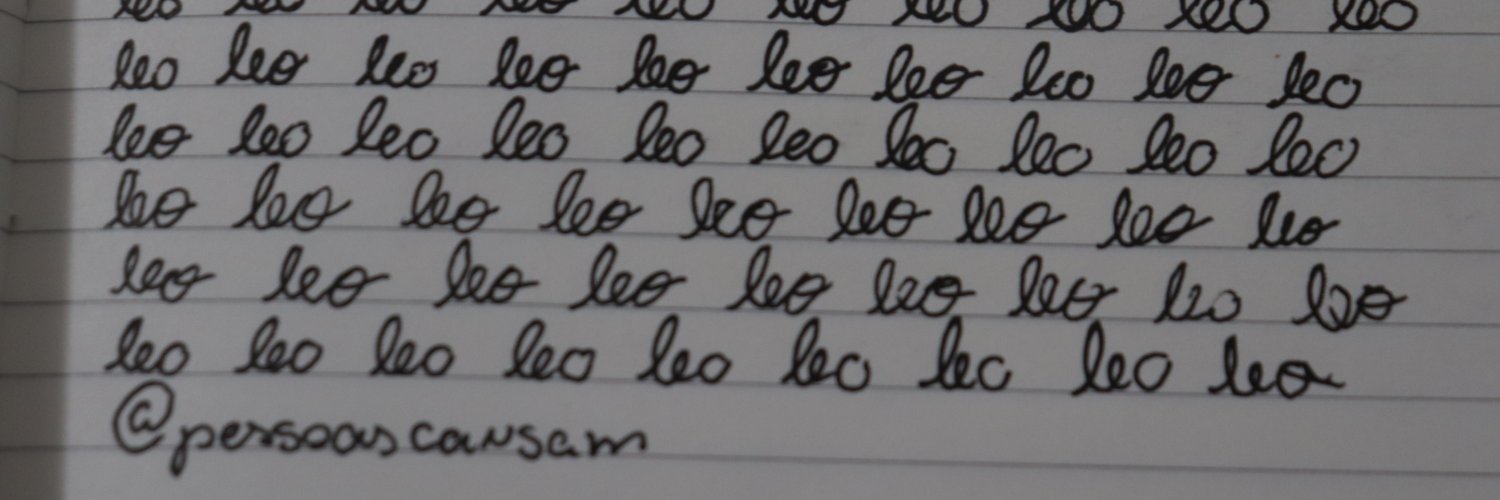 leo leo leo leo leo leo leo leo leo leo
leo leo leo leo leo leo leo leo leo leo
leo leo leo leo leo leo leo leo leo leo
leo leo leo leo leo leo leo leo leo
leo leo leo leo leo leo leo leo leo
leo leo leo leo leo leo leo leo leo
@pessoascansam